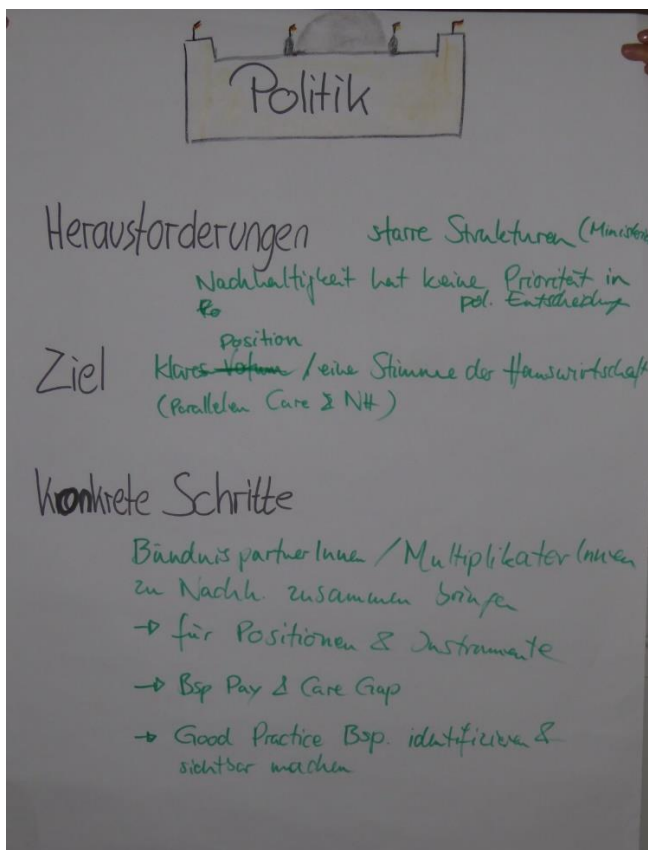 Politik
Herausforderungen starre Strukturen (Ministerie
Nachhaltigkeit hat keine Priorität in
pol. Entscheidung
Position
Ziel klares Votum / eine Stimme der Hauswirtschaft
(Parallelen Care & NH)
Konkrete Schritte
BündnispartnerInnen / MultiplikatorInnen
zu Nachh. zusammen bringen
→ für Positionen & Instrumente
→ Bsp Pay & Care Gap
→ Good Practice Bsp. identifizieren &
sichtbar machen